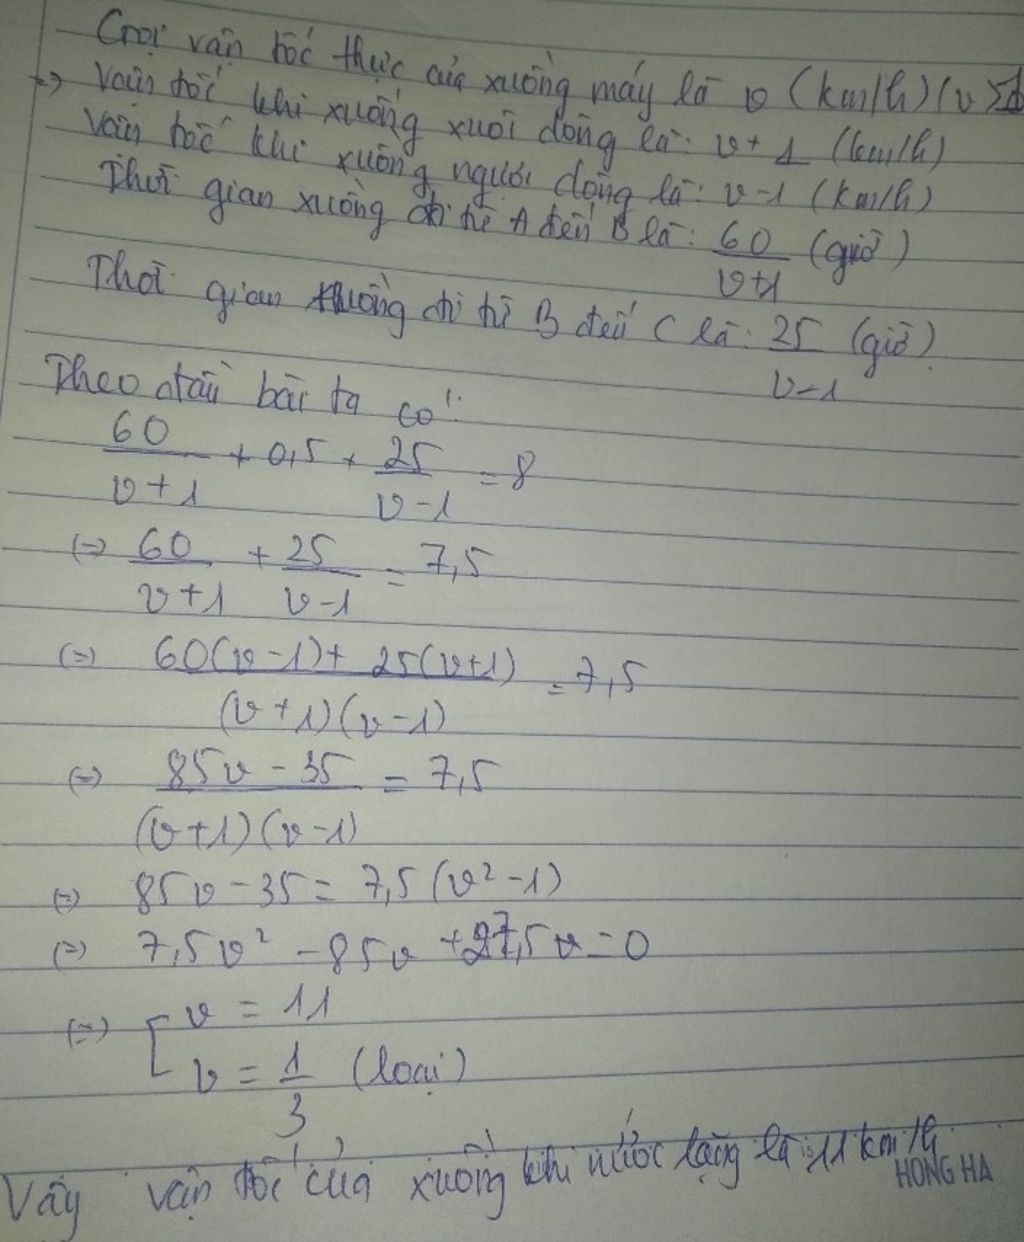 Gọi vận tốc thực của xuồng máy là v (km/h) (v>1)
=> Vận tốc khi xuồng xuôi dòng là: v+1 (km/h)
Vận tốc khi xuồng ngược dòng là: v-1 (km/h)
Thời gian xuồng đi từ A đến B là: 60/(v+1) (giờ)
Thời gian xuồng đi từ B đến C là: 25/(v-1) (giờ)
Theo đầu bài ta có:
60/(v+1) + 0,5 + 25/(v-1) = 8
(=) 60/(v+1) + 25/(v-1) = 7,5
(=) (60(v-1) + 25(v+1))/((v+1)(v-1)) = 7,5
(=) (85v - 35)/((v+1)(v-1)) = 7,5
(=) 85v - 35 = 7,5(v²-1)
(=) 7,5v² - 85v + 27,5v = 0
(=) [ v = 11
v = 1/3 (loại)
Vậy vận tốc của xuồng khi nước lặng là: 11 km/h
HONG HA